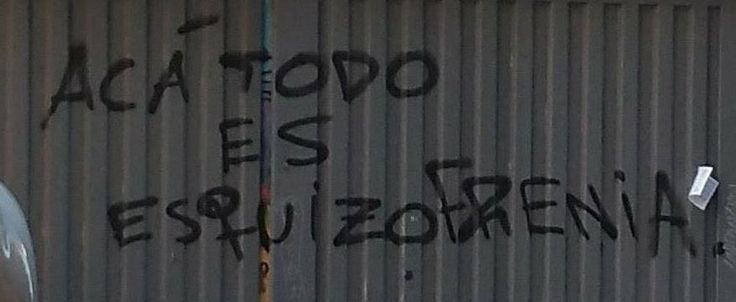 ACÁ TODO
ES
ESQUiZOFRENiA.